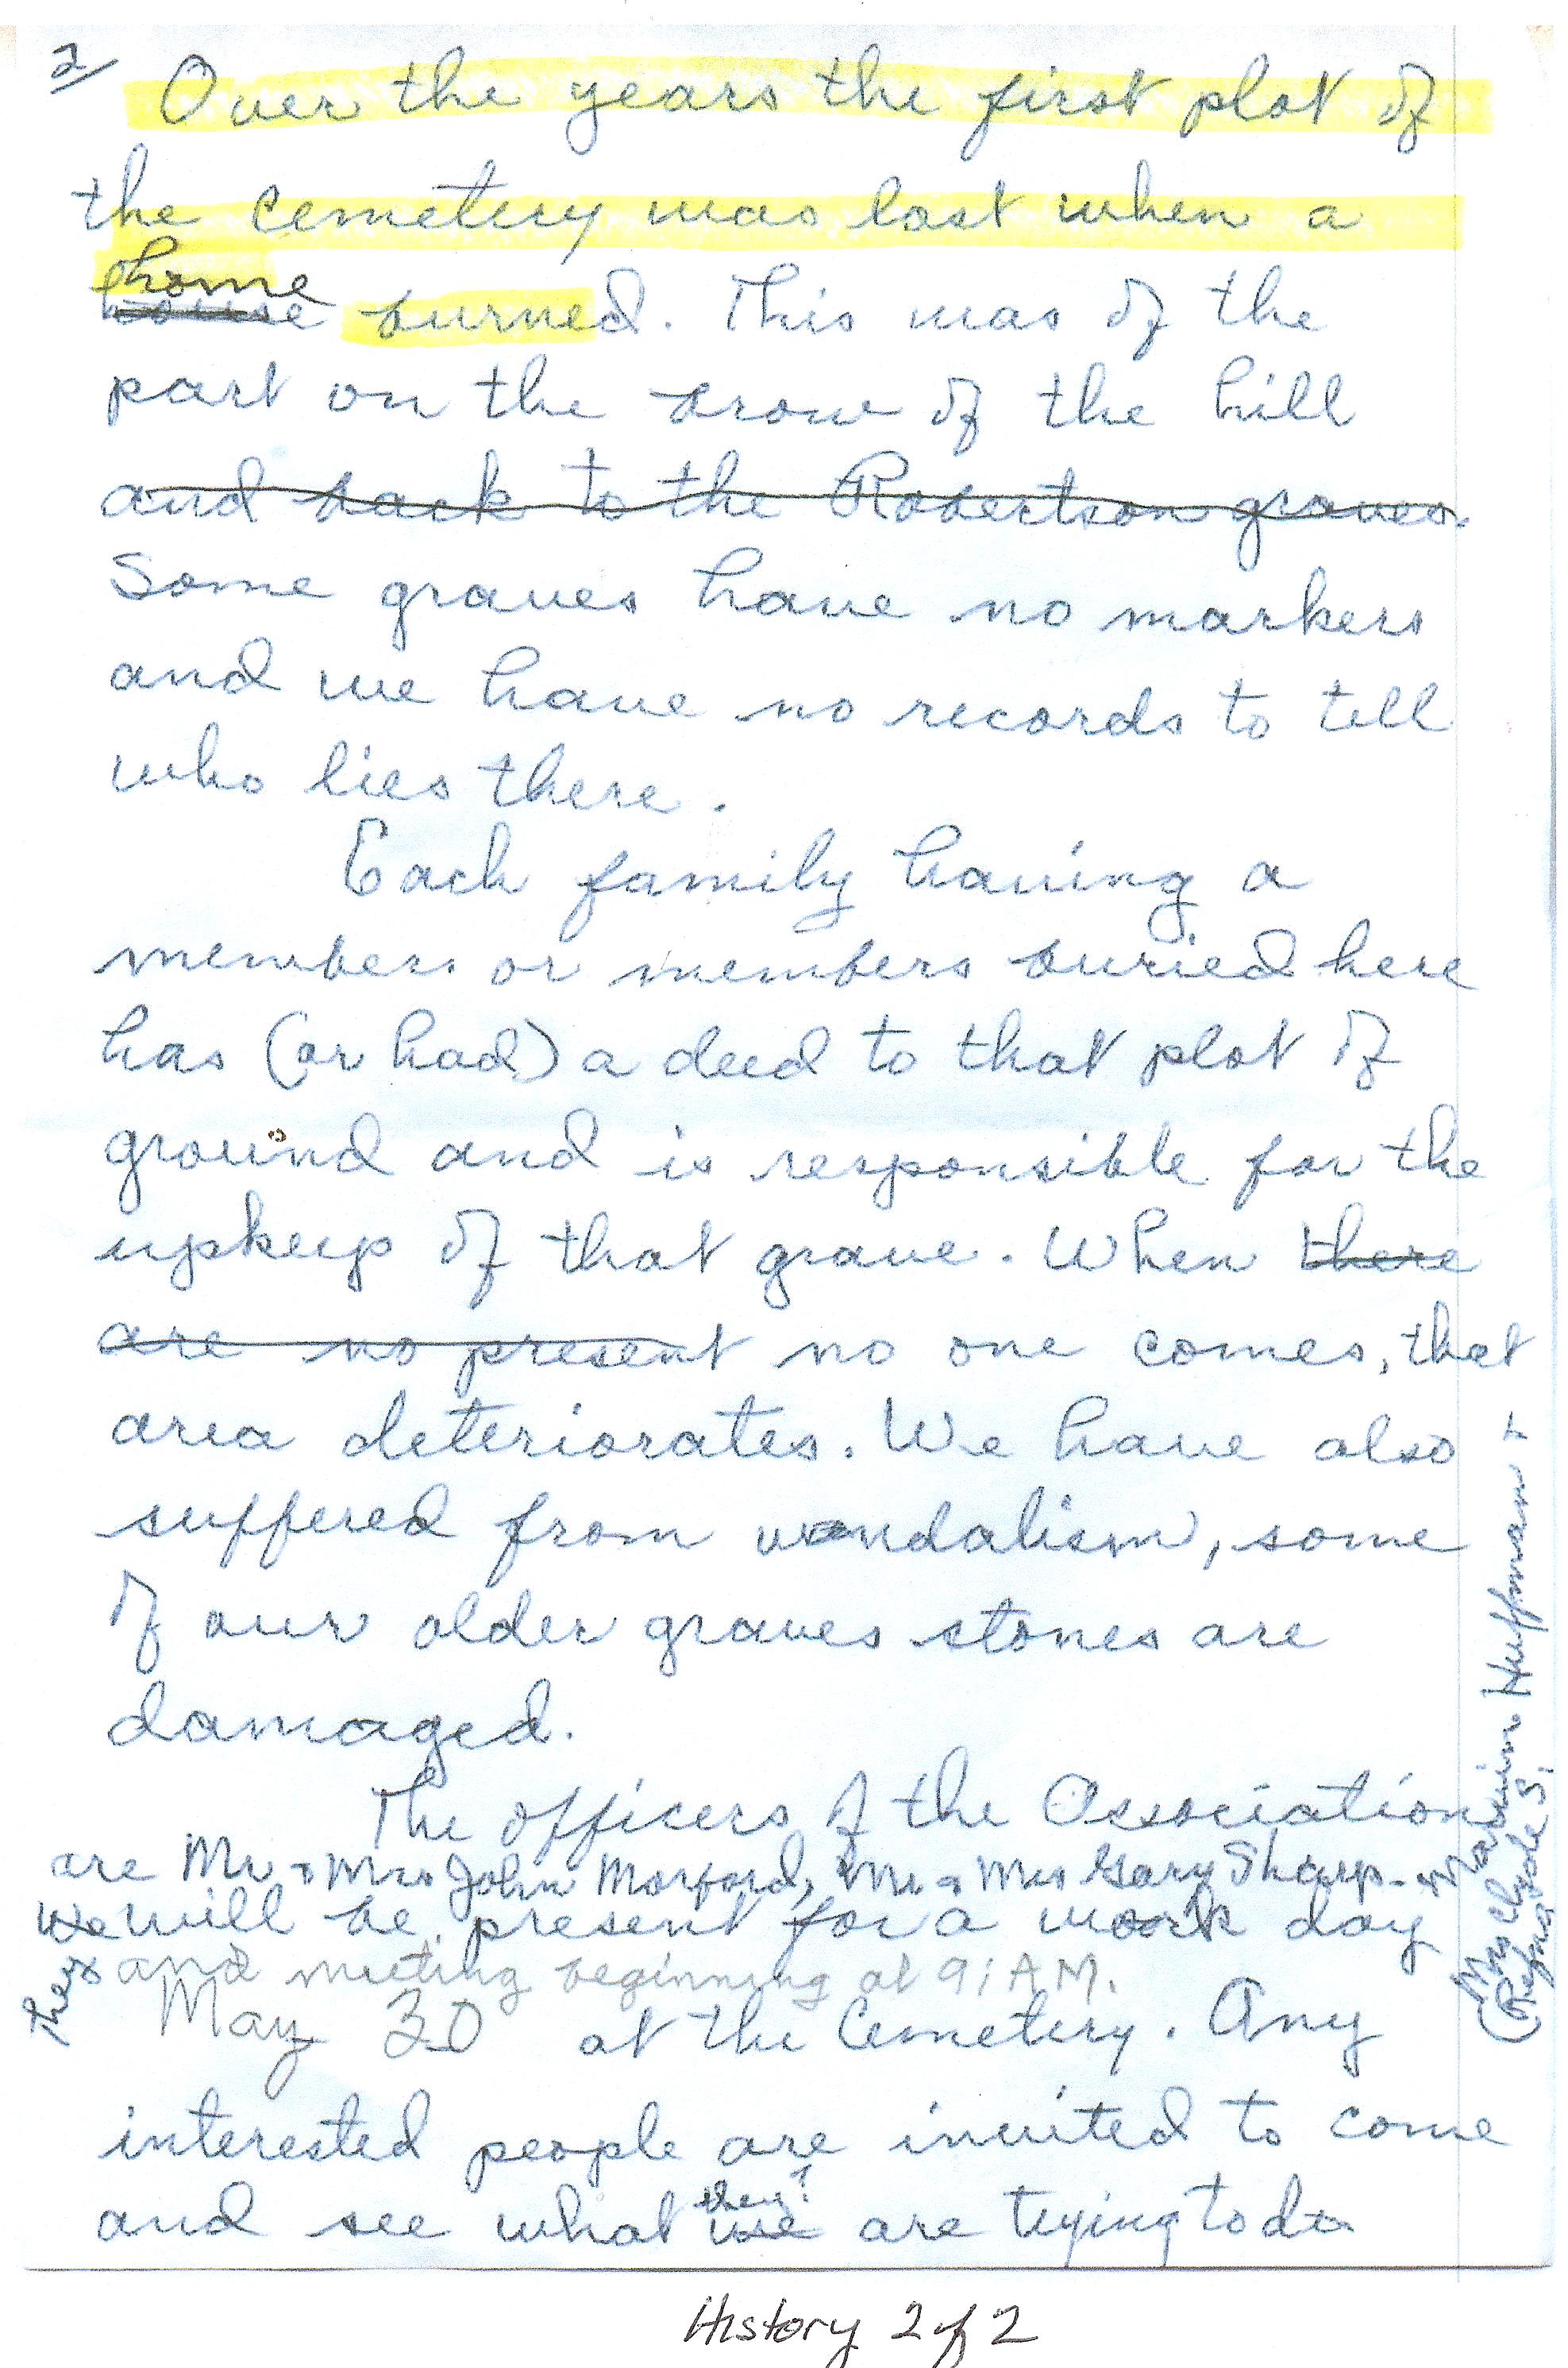 2/ Over the years the first plot of
the cemetery was lost when a
home
house burned. This was of the
part on the brow of the hill
and back to the Robertson graves.
Some graves have no markers
and we have no records to tell
who lies there.
Each family having a
members or members buried here
has (or had) a deed to that plot of
ground and is responsible for the
upkeep of that grave. When there
are no present no one comes, that
area deteriorates. We have also
suffered from vandalism, some
of our older graves stones are
damaged.
The officers of the Association
are Mr + Mrs John Morford, Mr + Mrs Gary Sharp -
Marvin Huffman +
Mrs Clyde S.
We will be present for a work day
They and meeting beginning at 9: A.M.
May 30 at the Cemetery. Any
interested people are invited to come
they?
and see what we are trying to do
History 2 of 2